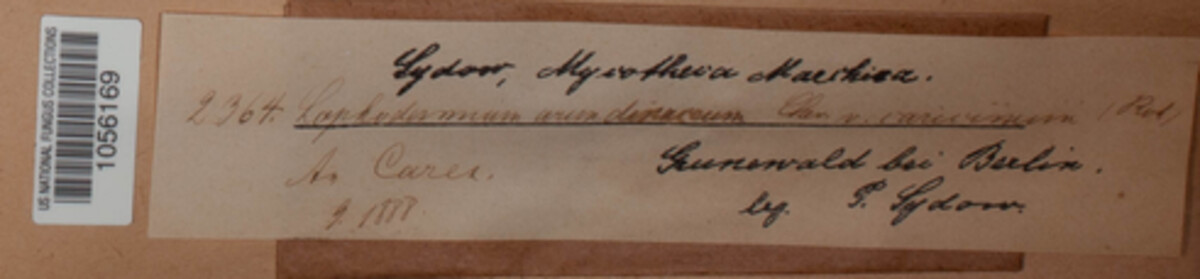 US NATIONAL FUNGUS COLLECTIONS
1056169
Sydow, Mycotheca Marchica.
2364. Lophodermium arundinaceum Chev. v. caricinum (Rob)
An Carex.
Grunewald bei Berlin.
9. 1888.
leg. P. Sydow.